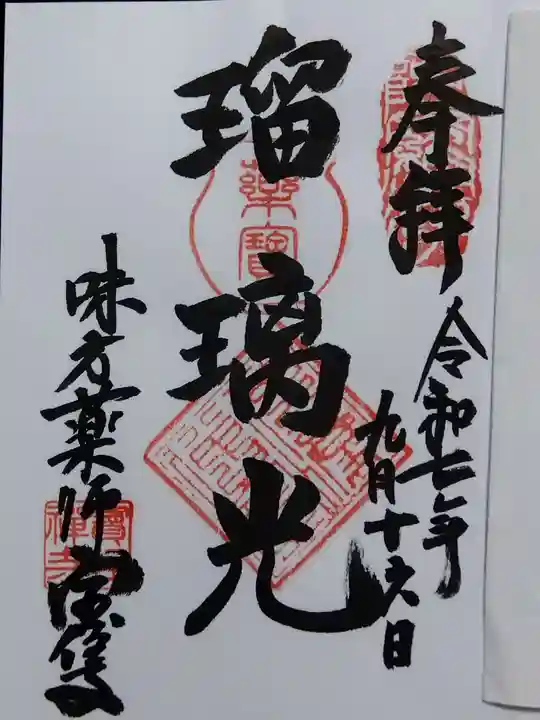 奉拝
令和七年
九月十六日
瑠璃光
薬寶
味方薬師